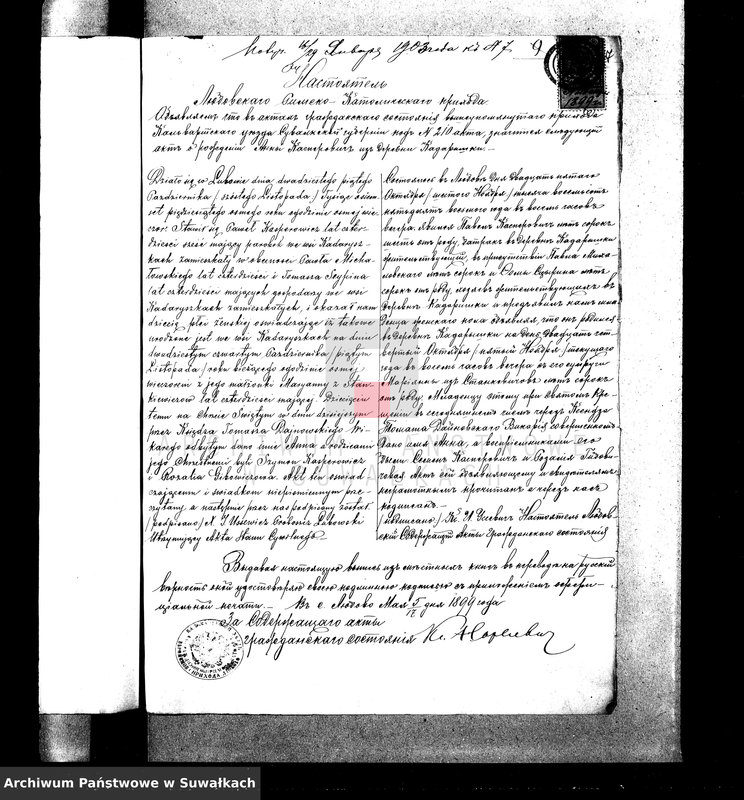 16/29 Января 1903 года къ № 7. 9
Настоятель
Любовскаго Римско-Католическаго прихода
Объявляетъ что въ актахъ гражданскаго состоянія вышеупомянутаго прихода
Кальварійскаго уѣзда Сувалкской губерніи подъ № 210 акта, значится слѣдующій
актъ о рожденіи Анны Касперовичъ изъ деревни Кадарышки.
Działo się w Lubowie dnia dwudziestego piątego
Października / szóstego Listopada / tysiąc ośm
set pięćdziesiątego ósmego roku o godzinie ósmej wie
czór. Stawił się Paweł Kasperowicz lat czter
dzieści sześć mający parobek we wsi Kadarysz
kach zamieszkały w obecności Pawła Micha
łowskiego lat czterdzieści i Tomasza
lat czterdzieści mających gospodarzy we wsi
Kadaryszkach zamieszkałych, i okazał nam
dziecię płci żeńskiej oświadczając iż takowe
urodzone jest we wsi Kadaryszkach na dniu
dwudziestym czwartym Października / piątym
Listopada / roku bieżącego o godzinie ósmej
wieczorem z jego małżonki Maryanny z Stan
kiewiczów lat czterdzieści mającej. Dziecięciu
temu na Chrzcie Świętym w dniu dzisiejszym
przez Księdza Tomasza Dajnowskiego Wi
karego odbytym dano imie Anna a rodzicami
jego chrzestnemi byli Szymon Kasperowicz
i Rozalia Gibowiczowa. Akt ten oświad
czającemu i świadkom niepiśmiennym prze
czytany a następnie przez nas podpisany został
/podpisano/ X. J. Usiewicz Proboszcz Lubowski
Utrzymujący Akta Stanu Cywilnego
Состоялось въ Любовѣ дня двадцать пятаго
Октября / шестого Ноября / тысяча восемьсотъ
пятьдесятъ восьмого года въ восемь часовъ
вечера. Явился Павелъ Касперовичъ лѣтъ сорокъ
шесть отъ роду, батракъ въ деревнѣ Кадарышки
жительствующій, въ присутствіи Павла Миха
ловскаго лѣтъ сорокъ и Ѳомы лѣтъ
сорокъ отъ роду, хозяевъ жительствующихъ въ
деревнѣ Кадарышки и предъявилъ намъ мла
денца женскаго пола объявляя, что онъ родился
въ деревнѣ Кадарышки на день двадцать чет
вертый Октября / пятый Ноября / текущаго
года въ восемь часовъ вечера изъ его супруги
Маріанны изъ Станкевичовъ лѣтъ сорокъ
отъ роду. Младенцу этому при Святомъ Кре
щеніи въ сегодняшнемъ днѣ чрезъ Ксендза
Томаша Дайновскаго Викарія совершенномъ
дано имя Анна, а воспріемниками его
были Семенъ Касперовичъ и Розалія Гибови
чова. Актъ сей объявляющему и свидѣтелямъ
неграмотнымъ прочитанъ и чрезъ насъ
подписанъ
/подписано/ Кс. И. Усевичъ Настоятель Любов
скій Содержащій Акты Гражданскаго Состоянія
Выдавая настоящую выпись изъ мѣстныхъ книгъ въ переводѣ на русскій
вѣрность оной удостовѣряю своею подлинною подписью съ приложеніемъ оффи
ціальной печати. Въ с. Любово Мая 5/17 дня 1899 года
За Содержащаго акты
гражданскаго состоянія Кс.
Archiwum Państwowe w Suwałkach